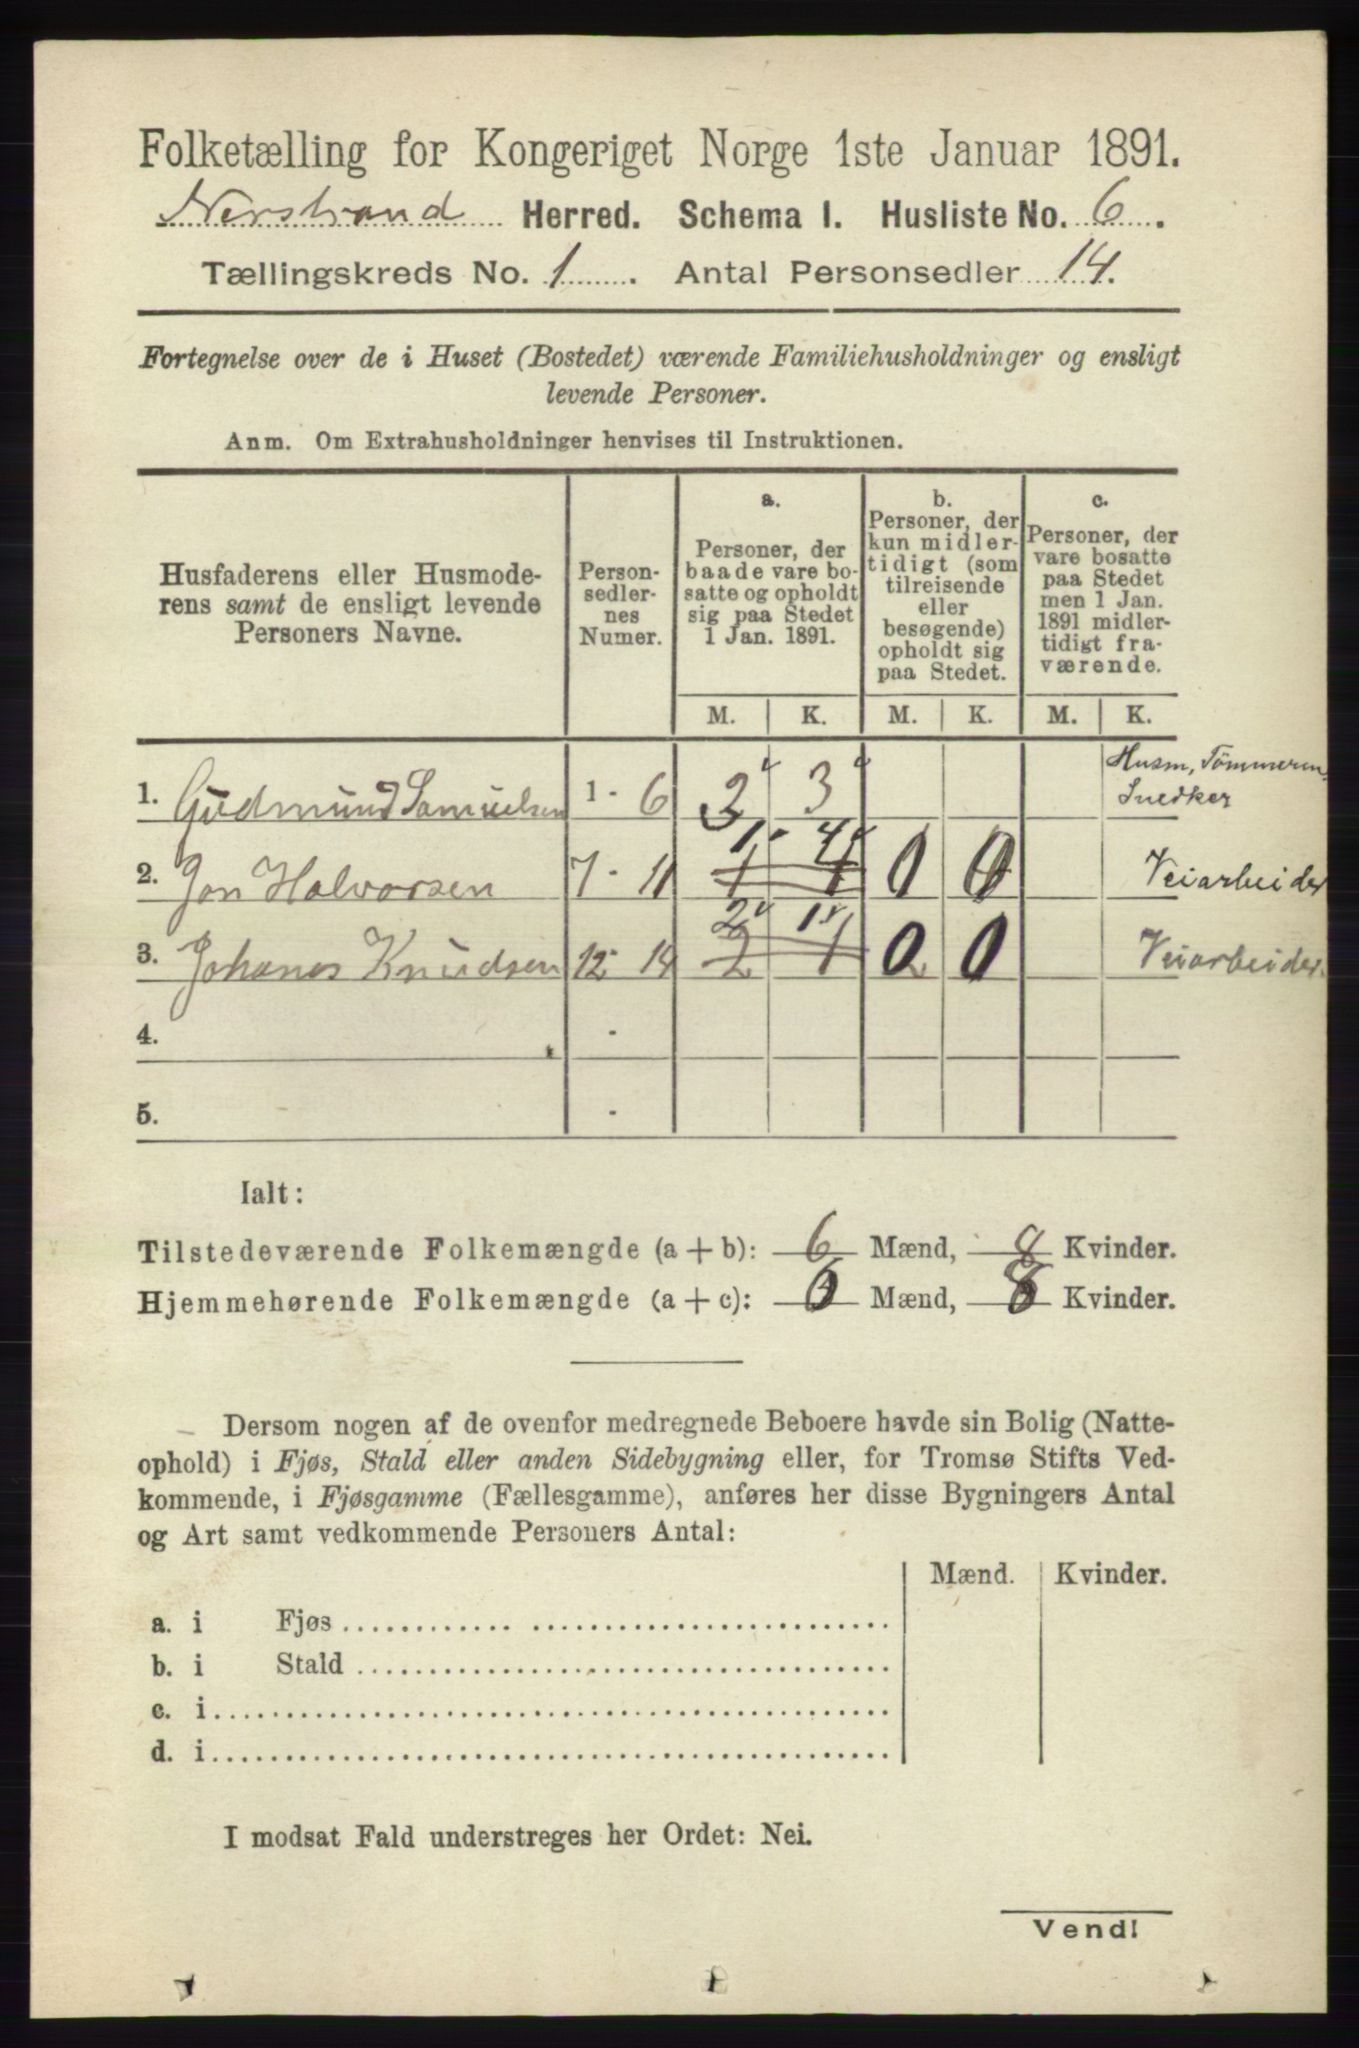 Folketælling for Kongeriget Norge 1ste Januar 1891.
Nerstrand Herred. Schema I. Husliste No. 6.
Tællingskreds No. 1. Antal Personsedler 14.
Fortegnelse over de i Huset (Bostedet) værende Familiehusholdninger og ensligt
levende Personer.
Anm. Om Extrahusholdninger henvises til Instruktionen.
Husfaderens eller Husmode-
rens samt de ensligt levende
Personers Navne.
Person-
sedler-
nes
Numer.
a.
Personer, der
baade vare bo-
satte og opholdt
sig paa Stedet
1 Jan. 1891.
b.
Personer, der
kun midler-
tidigt (som
tilreisende
eller
besøgende)
opholdt sig
paa Stedet.
c.
Personer, der
vare bosatte
paa Stedet
men 1 Jan.
1891 midler-
tidigt fra-
værende.
M. K. M. K. M. K.
1. Gudmund Samuelsen 1 - 6 3 3 Husm, Tömmerm.
Snedker
1 4
2. Jon Halvorsen 7 - 11 1 4 0 0 Veiarbeider
2 1
3. Johanes Knudsen 12 - 14 2 1 0 0 Veiarbeider.
4. -
5. -
Ialt:
Tilstedeværende Folkemængde (a + b): 6 Mænd, 8 Kvinder.
Hjemmehørende Folkemængde (a + c): 6 Mænd, 8 Kvinder.
Dersom nogen af de ovenfor medregnede Beboere havde sin Bolig (Natte-
ophold) i Fjøs, Stald eller anden Sidebygning eller, for Tromsø Stifts Ved-
kommende, i Fjøsgamme (Fællesgamme), anføres her disse Bygningers Antal
og Art samt vedkommende Personers Antal:
Mænd. Kvinder.
a. i Fjøs
b. i Stald
c. i
d. i
I modsat Fald understreges her Ordet: Nei.
Vend!